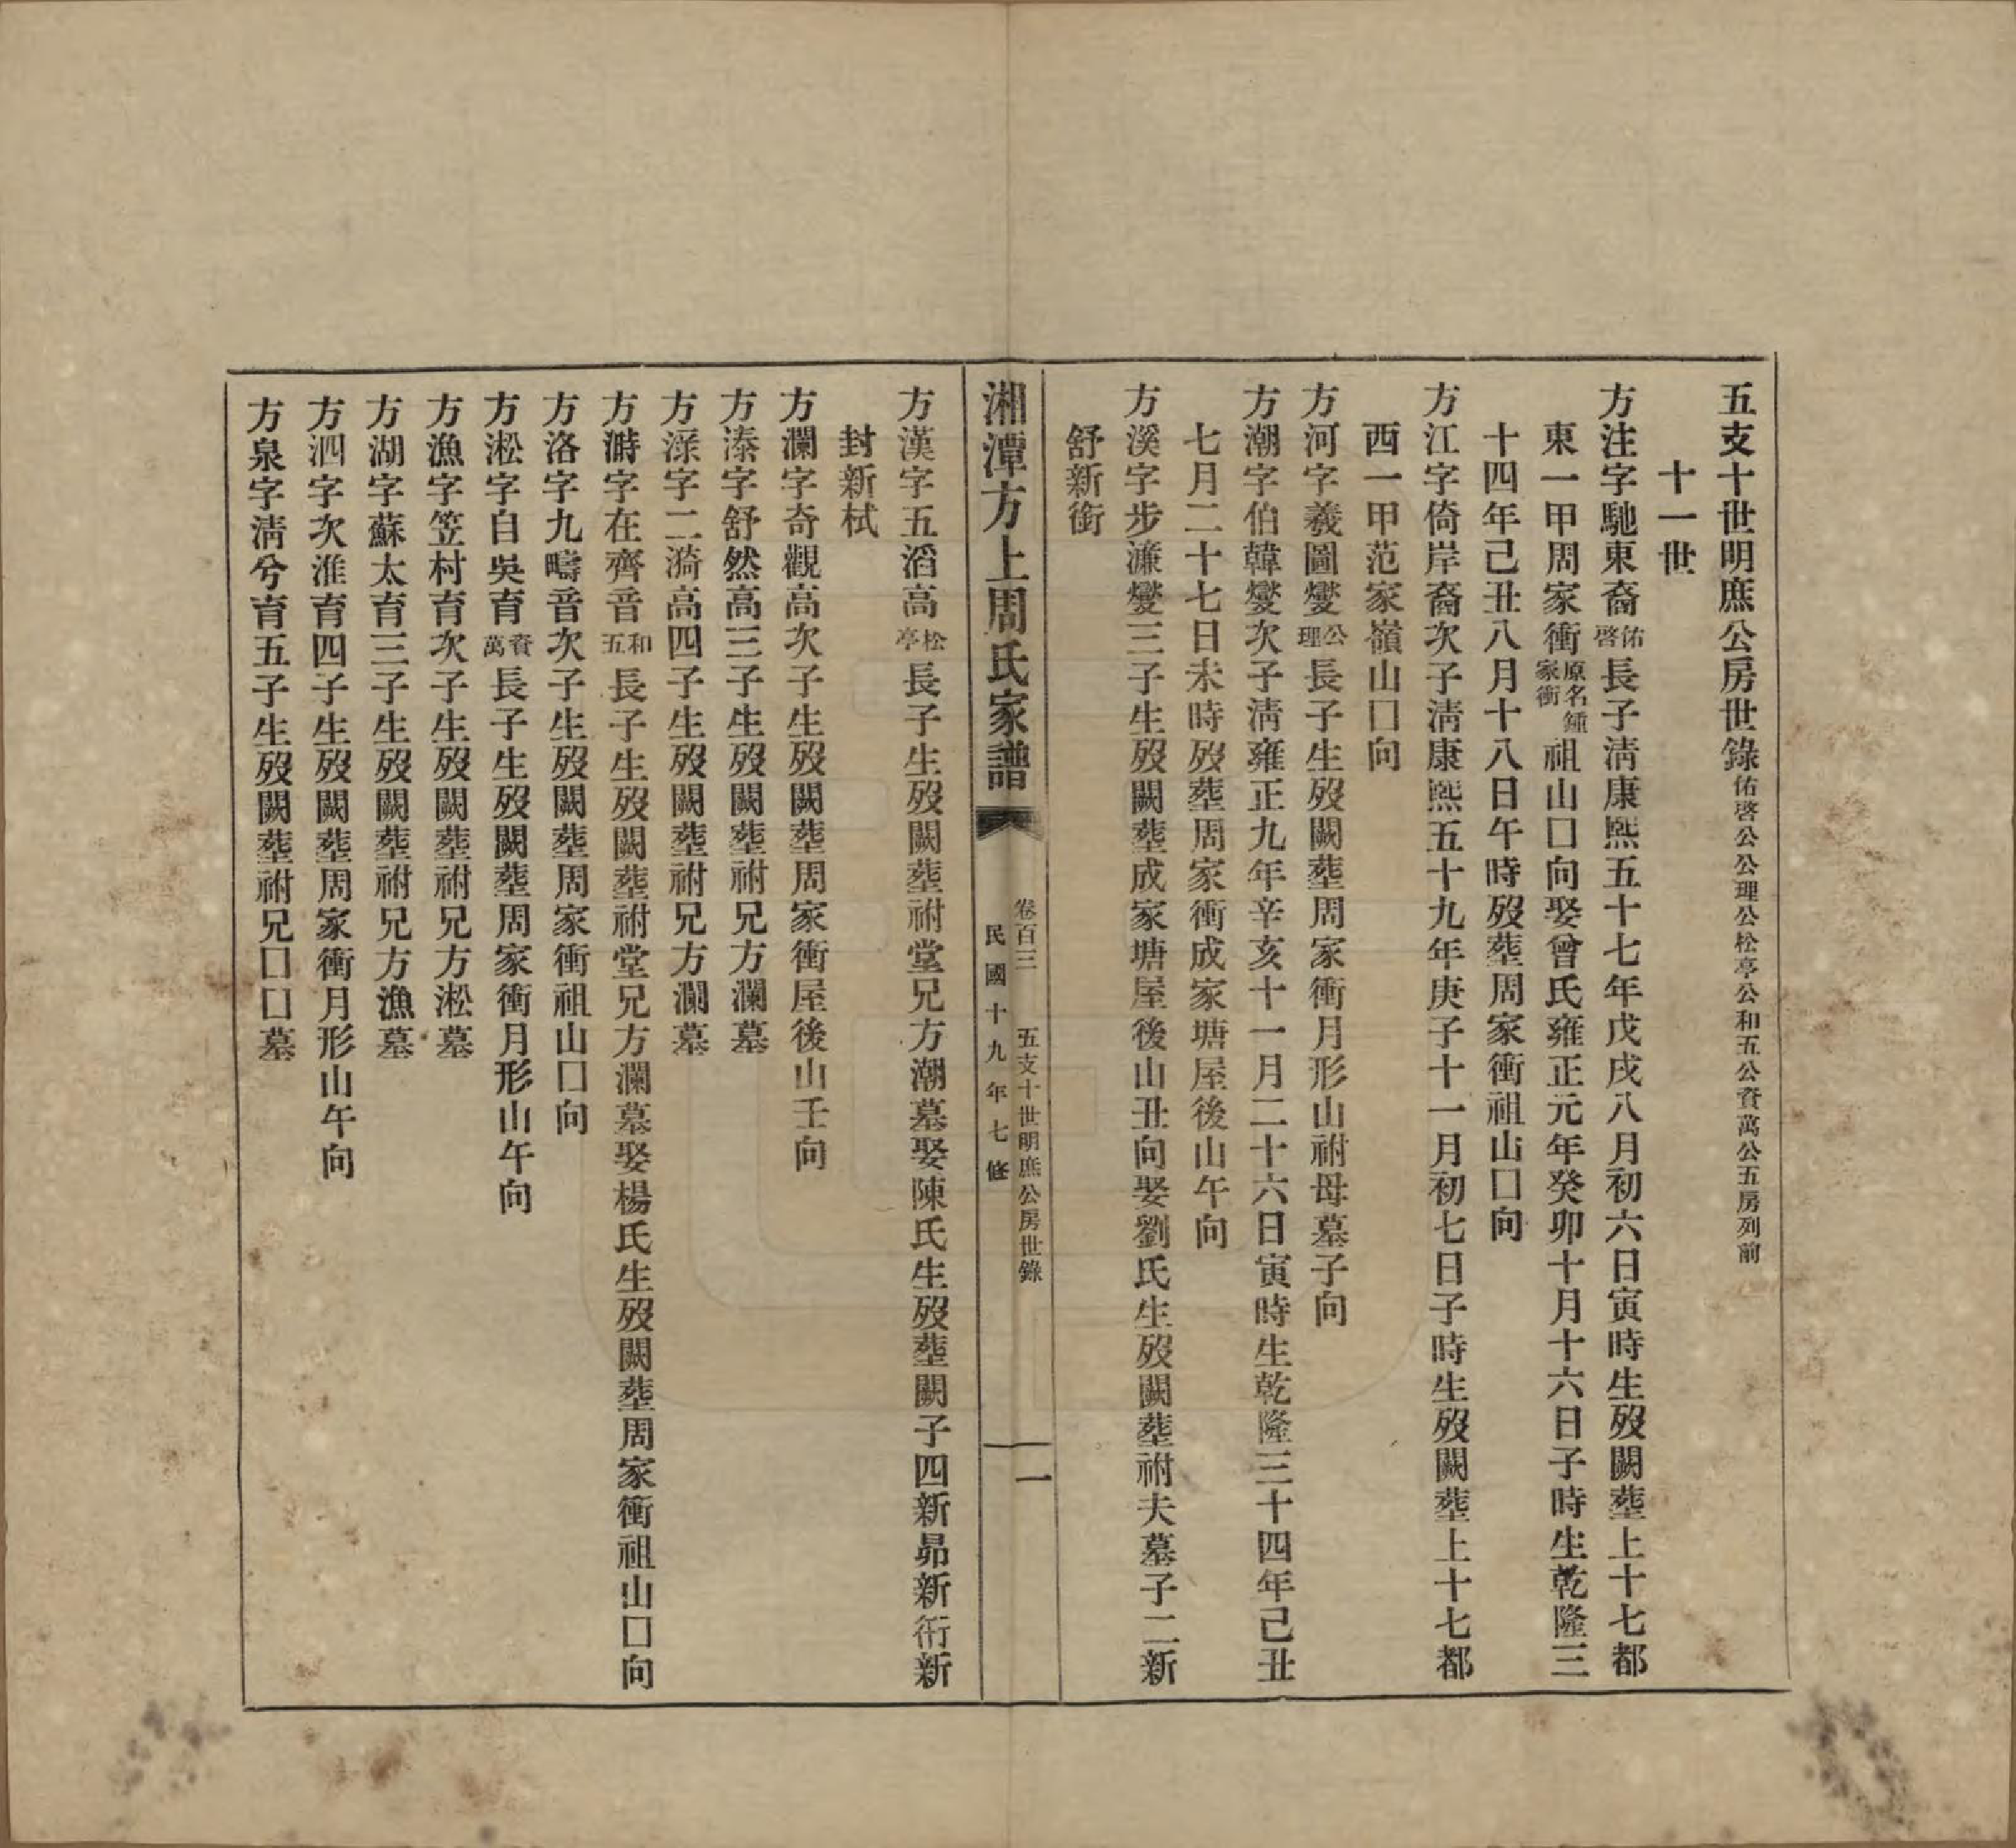 五支十世明庶公房世錄佑啓公公理公松亭公和五公資萬公五房列前
十一世
方注字馳東裔佑啓長子淸康熙五十七年戊戌八月初六日寅時生歿闕葬上十七都
東一甲周家衝原名鍾家衝祖山囗向娶曾氏雍正元年癸卯十月十六日子時生乾隆三
十四年己丑八月十八日午時歿葬周家衝祖山囗向
方江字倚岸裔次子淸康熙五十九年庚子十一月初七日子時生歿闕葬上十七都
西一甲范家嶺山囗向
方河字羲圖燮公理長子生歿闕葬周家衝月形山祔母墓子向
方潮字伯韓燮次子淸雍正九年辛亥十一月二十六日寅時生乾隆三十四年己丑
七月二十七日未時歿葬周家衝成家塘屋後山午向
方溪字步濂燮三子生歿闕葬成家塘屋後山丑向娶劉氏生歿闕葬祔夫墓子二新
舒新銜
湘潭方上周氏家譜
卷百三 五支十世明庶公房世錄
一
民國十九年七修
方漢字五滔高松亭長子生歿闕葬祔堂兄方潮墓娶陳氏生歿葬闕子四新昴新衎新
封新栻
方瀾字奇觀高次子生歿闕葬周家衝屋後山壬向
方溱字舒然高三子生歿闕葬祔兄方瀾墓
方淥字二漪高四子生歿闕葬祔兄方瀾墓
方溡字在齊音和五長子生歿闕葬祔堂兄方瀾墓娶楊氏生歿闕葬周家衝祖山囗向
方洛字九疇音次子生歿闕葬周家衝祖山囗向
方淞字自吳育資萬長子生歿闕葬周家衝月形山午向
方漁字笠村育次子生歿闕葬祔兄方淞墓
方湖字蘇太育三子生歿闕葬祔兄方漁墓
方泗字次淮育四子生歿闕葬周家衝月形山午向
方泉字淸兮育五子生歿闕葬祔兄囗囗墓